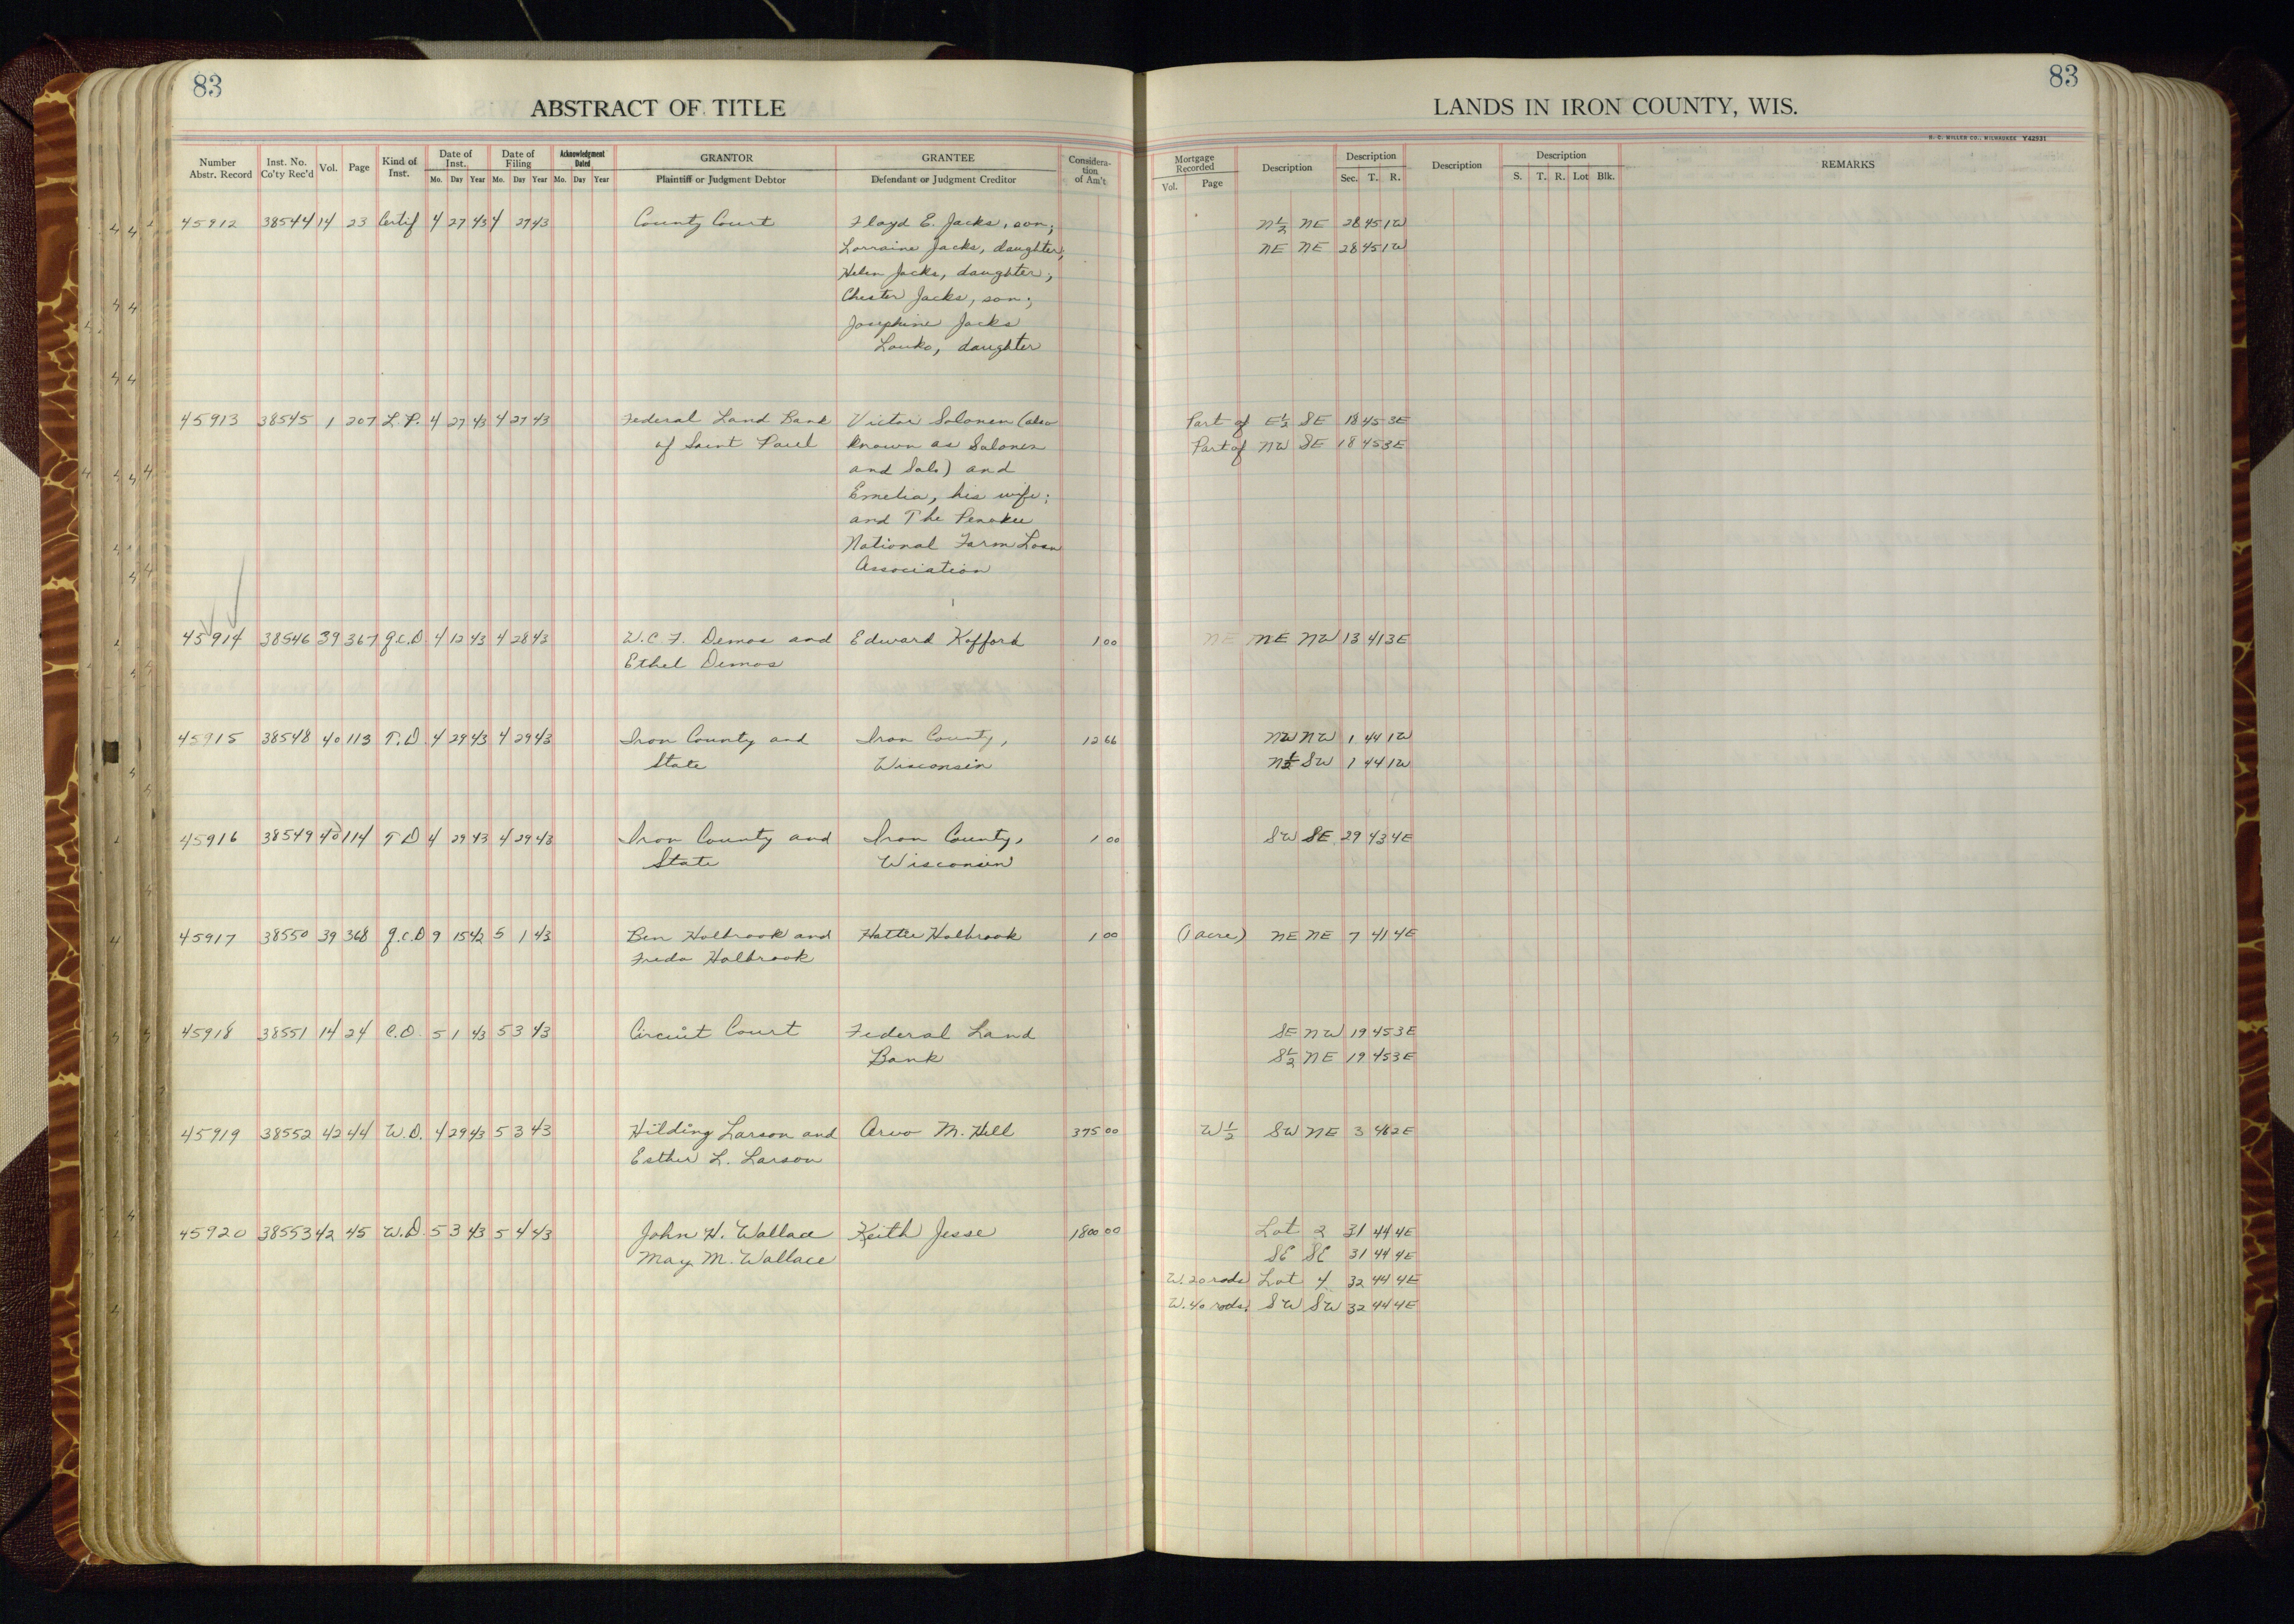 83
ABSTRACT OF TITLE
Number Abstr. Record | Inst. No. Co'ty Rec'd | Vol. | Page | Kind of Inst. | Date of Inst. Mo. Day Year | Date of Filing Mo. Day Year | Acknowledgment Dated Mo. Day Year | GRANTOR Plaintiff or Judgment Debtor | GRANTEE Defendant or Judgment Creditor | Consideration of Am't
45912 38544 14 23 Certif 4 27 43 4 27 43 County Court Floyd E. Jacks, son;
Lorraine Jacks, daughter;
Helen Jacks, daughter;
Chester Jacks, son;
Josephine Jacks
Louko, daughter
45913 38545 1 207 L.P. 4 27 43 4 27 43 Federal Land Bank Victor Solonen (also
of Saint Paul known as Salonen
and Salo) and
Emelia, his wife;
and The Penokee
National Farm Loan
Association
45914 38546 39 367 Q.C.D. 4 12 43 4 28 43 W.C.F. Demos and Edward Kofford 1 00
Ethel Demos
45915 38548 40 113 T.D. 4 29 43 4 29 43 Iron County and Iron County, 12 66
State Wisconsin
45916 38549 40 114 T D 4 29 43 4 29 43 Iron County and Iron County, 1 00
State Wisconsin
45917 38550 39 368 Q.C.D 9 15 42 5 1 43 Ben Holbrook and Hattie Holbrook 1 00
Freda Holbrook
45918 38551 14 24 C.O. 5 1 43 5 3 43 Circuit Court Federal Land
Bank
45919 38552 42 44 W.D. 4 29 43 5 3 43 Hilding Larson and Arvo M. Hill 375 00
Esther L. Larson
45920 38553 42 45 W.D. 5 3 43 5 4 43 John H. Wallace Keith Jesse 1800 00
May M. Wallace
83
LANDS IN IRON COUNTY, WIS.
R. C. MILLER CO., MILWAUKEE Y42931
Mortgage Recorded Vol. Page | Description | Description Sec. T. R. | Description | Description S. T. R. Lot Blk. | REMARKS
N½ NE 28 45 1W
NE NE 28 45 1W
Part of E½ SE 18 45 3E
Part of NW SE 18 45 3E
NE NE NW 13 41 3E
NW NW 1 44 1W
N½ SW 1 44 1W
SW SE 29 43 4E
(1 acre) NE NE 7 41 4E
SE NW 19 45 3E
S½ NE 19 45 3E
W½ SW NE 3 46 2E
Lot 2 31 44 4E
SE SE 31 44 4E
W. 20 rods Lot 4 32 44 4E
W. 40 rods SW SW 32 44 4E